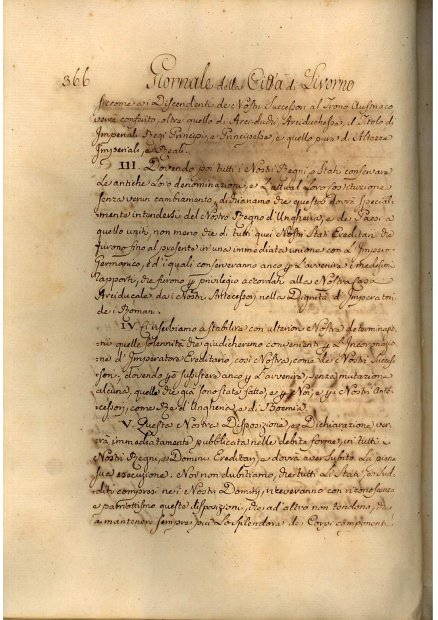 366 Giornale della Città di Livorno
siccome ai Discendenti de Nostri Successori al Trono Austriaco
verrà conferito, oltre quello di Arciduchi, Arciduchesse, il Titolo di
Imperiali Regi Principi, e Principesse, e quello pure di Altezze
Imperiali, e Reali.
III. Dovendo poi tutti i Nostri Regni, e Stati conservare
Le antiche loro denominazioni, e L'attual Loro costituzione
senza verun cambiamento, dichiariamo che questo dovrà special-
mente intendersi del Nostro Regno d'Ungheria, e de Paesi a
quello uniti, non meno che di tutti quei Nostri Stati Ereditari che
furono fino al presente in una immediata unione con L'Impero
Germanico, ed i quali conserveranno anco p L'avvenire i medesimi
rapporti, che furono p privilegio accordati alla Nostra Casa
Arciducale da i Nostri Antecessori nella Dignità d'Imperatori
de i Romani.
IV. Ci riserbiamo a stabilire con ulteriori Nostre determinazio-
ni quelle solennità che giudicheremo convenienti p L'Incoronazio-
ne d'Imperatore Ereditario così Nostra, come de Nostri Succes-
sori, dovendo però sussistere anco p L'avvenire, senza mutazione
alcuna, quelle che già sono state fatte, e p Noi, e p i Nostri Ante-
cessori, come Re d'Ungheria e di Boemia.
V. Questa Nostra Disposizione, e Dichiarazione ver-
rà immediatamente pubblicata nelle debite forme, in tutti i
Nostri Regni, e Domini Ereditari, e dovrà aver subito La pie-
na sua esecuzione. Noi non dubitiamo, che tutti Li Stati, e Sud-
diti compresi ne i Nostri Dominj, riceveranno con riconoscenza
e patriottismo queste disposizioni, che ad altro non tendono, che
a mantenere sempre più Lo Splendore de Corpi componenti